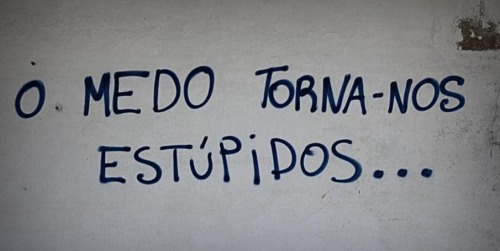 O MEDO TORNA-NOS
ESTÚPIDOS...